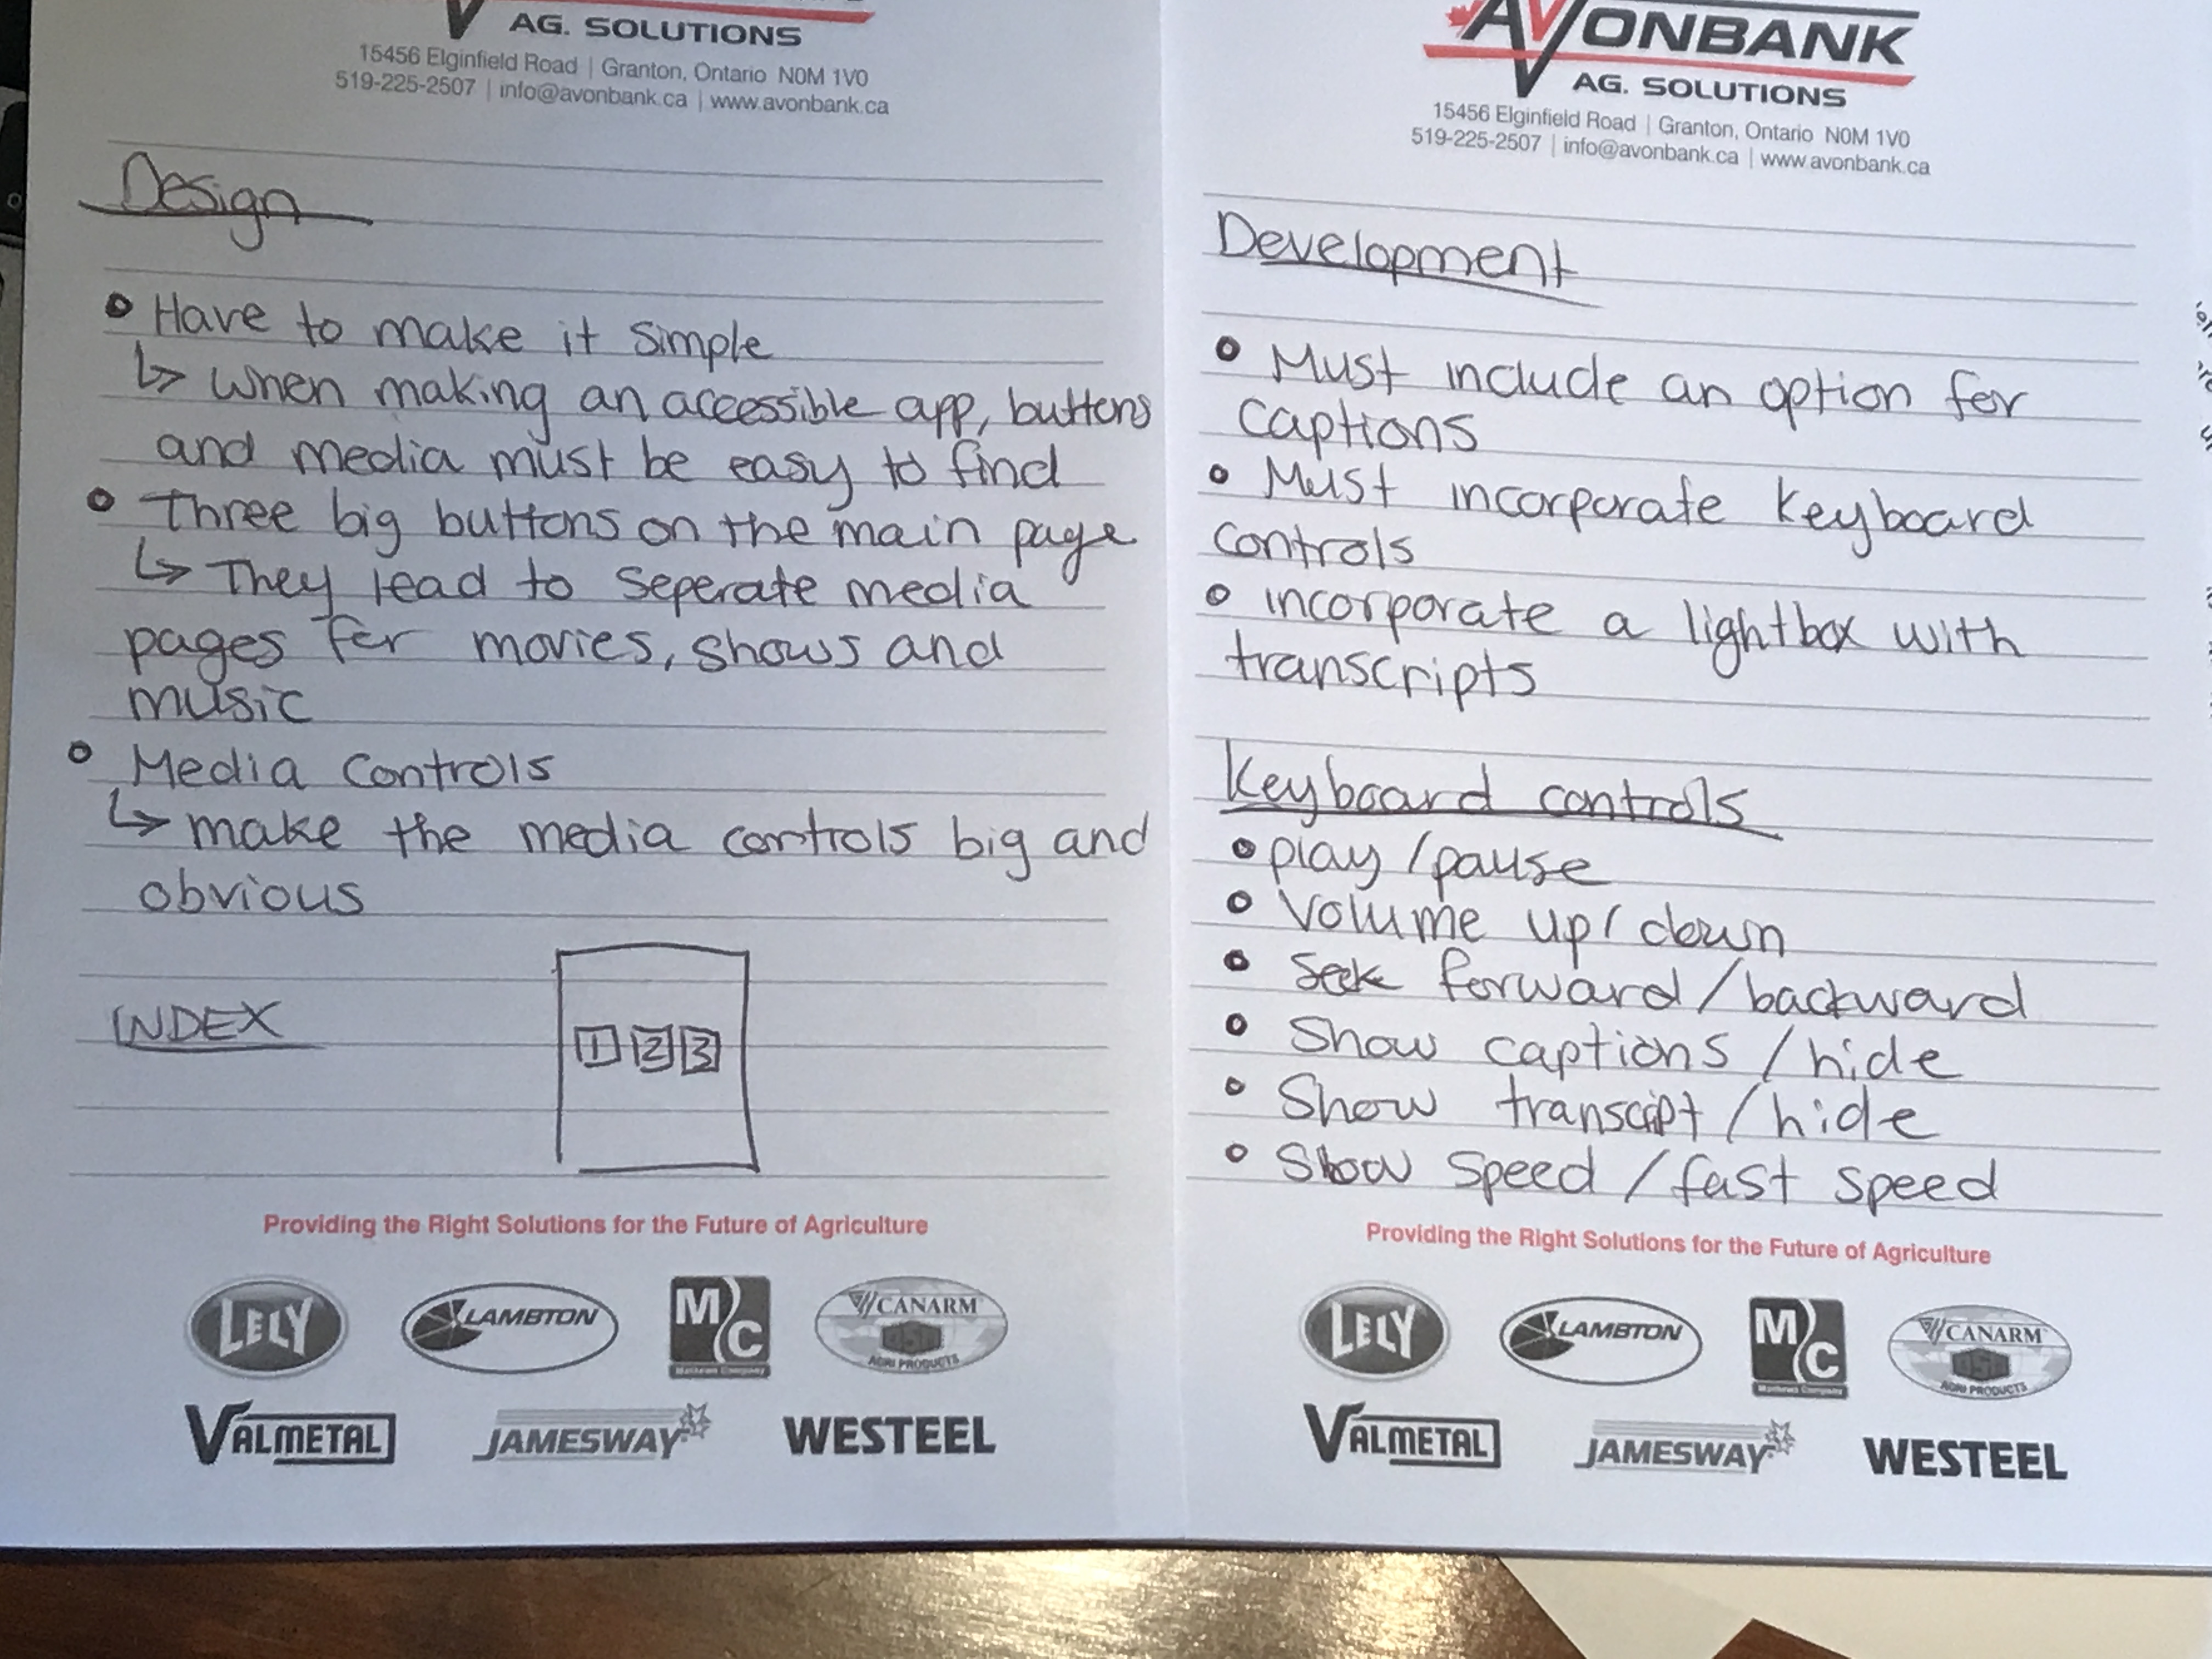 AG. SOLUTIONS
15456 Elginfield Road | Granton, Ontario N0M 1V0
519-225-2507 | info@avonbank.ca | www.avonbank.ca
Design
• Have to make it simple
↳ when making an accessible app, buttons
and media must be easy to find
• Three big buttons on the main page
↳ They lead to seperate media
pages for movies, shows and
music
• Media controls
↳ make the media controls big and
obvious
INDEX
1 2 3
Providing the Right Solutions for the Future of Agriculture
LELY LAMBTON MC CANARM AGRI PRODUCTS
VALMETAL JAMESWAY WESTEEL
AVONBANK
AG. SOLUTIONS
15456 Elginfield Road | Granton, Ontario N0M 1V0
519-225-2507 | info@avonbank.ca | www.avonbank.ca
Development
• Must include an option for
captions
• Must incorporate keyboard
controls
• incorporate a lightbox with
transcripts
Keyboard controls
• play/pause
• Volume up/down
• Seek forward/backward
• Show captions/hide
• Show transcipt/hide
• Slow speed/fast speed
Providing the Right Solutions for the Future of Agriculture
LELY LAMBTON MC CANARM AGRI PRODUCTS
VALMETAL JAMESWAY WESTEEL